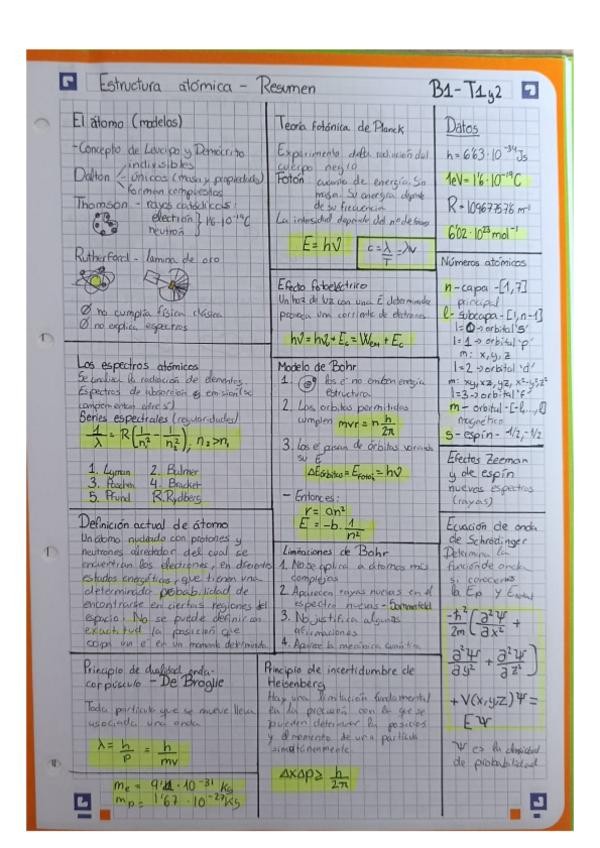 Estructura atómica - Resumen
B1-T1y2
El átomo (modelos)
-Concepto de Leucipo y Demócrito
indivisibles
Dalton - únicos (masa y propiedades)
forman compuestos
Thomson - rayos catódicos:
electrón } 1'6·10⁻¹⁹C
neutrón
Rutherford - lamina de oro
Ø no cumplía física clásica
Ø no explica espectros
Los espectros atómicos
Se analiza la radiación de elementos.
Espectros de absorción o emisión (se
complementan entre sí)
Series espectrales (regularidades)
1/λ = R(1/n₁² - 1/n₂²), n₂>n₁
1. Lyman 2. Balmer
3. Paschen 4. Bracket
5. Pfund R. Rydberg
Definición actual de átomo
Un átomo nucleado con protones y
neutrones alrededor del cual se
encuentran los electrones, en diferentes
estados energéticos, que tienen una
determinada probabilidad de
encontrarse en ciertas regiones del
espacio. No se puede definir con
exactitud la posición que
ocupa un e⁻ en un momento determinado
Principio de dualidad onda-
corpúsculo - De Broglie
Toda partícula que se mueve lleva
asociada una onda
λ = h/p = h/mv
me = 9'11·10⁻³¹ Kg
mp = 1'67·10⁻²⁷ Kg
Teoría fotónica de Planck
Experimento de la radiación del
cuerpo negro
Fotón cuanto de energía. Sin
masa. Su energía depende
de su frecuencia
La intensidad depende del nº de fotones
E = hν
c = λ/T = λν
Efecto fotoeléctrico
Un haz de luz con una E determinada
provoca una corriente de electrones
hν = hν₀ + Ec = Wext + Ec
Modelo de Bohr
1. los e⁻ no emiten energía
estructura
2. Las órbitas permitidas
cumplen mvr = n h/2π
3. Los e⁻ pasan de órbitas variando
su E
ΔEórbitas = Efotón = hν
- Entonces:
r = an²
E = -b·1/n²
Limitaciones de Bohr
1. No se aplica a átomos más
complejos
2. Aparecen rayas nuevas en el
espectro nuevas - Sommerfeld
3. No justifica algunas
afirmaciones
4. Aparece la mecánica cuántica
Principio de incertidumbre de
Heisenberg
Hay una limitación fundamental
en la precisión con la que se
pueden determinar la posición
y el momento de una partícula
simultáneamente.
ΔxΔp≥ h/2π
Datos
h = 6'63·10⁻³⁴Js
1eV = 1'6·10⁻¹⁹C
R = 10967757'6 m⁻¹
6'02·10²³mol⁻¹
Números atómicos
n - capa - [1,7]
principal
l - subcapa - [1,n-1]
l=0→orbital 's'
l=1→orbital 'p'
m: x,y,z
l=2→orbital 'd'
m: xy,xz,yz, x²-y²,z²
l=3→orbital 'f'
m - orbital - [-l...,l]
magnético
s - espín - 1/2,-1/2
Efectos Zeeman
y de espín
nuevos espectros
(rayas)
Ecuación de onda
de Schrödinger
Determina la
función de onda
si conocemos
la Ep y Etotal
-ħ²/2m (∂²Ψ/∂x² +
∂²Ψ/∂y² + ∂²Ψ/∂z²)
+ V(x,y,z)Ψ =
EΨ
Ψ es la densidad
de probabilidad